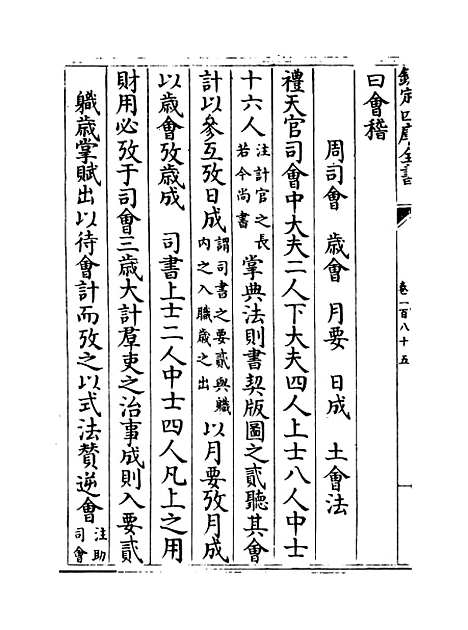 欽定四庫全書
卷一百八十五
曰會稽
周司會 歲會 月要 日成 土會法
禮天官司會中大夫二人下大夫四人上士八人中士
十六人注計官之長若今尚書掌典法則書契版圖之貳聽其會
計以參互攷日成謂司書之要貳與職内之入職歲之出以月要攷月成
以歲會攷歲成 司書上士二人中士四人凡上之用
財用必攷于司會三歲大計羣吏之治事成則入要貳
職歲掌賦出以待會計而攷之以式法贊逆會注助司會